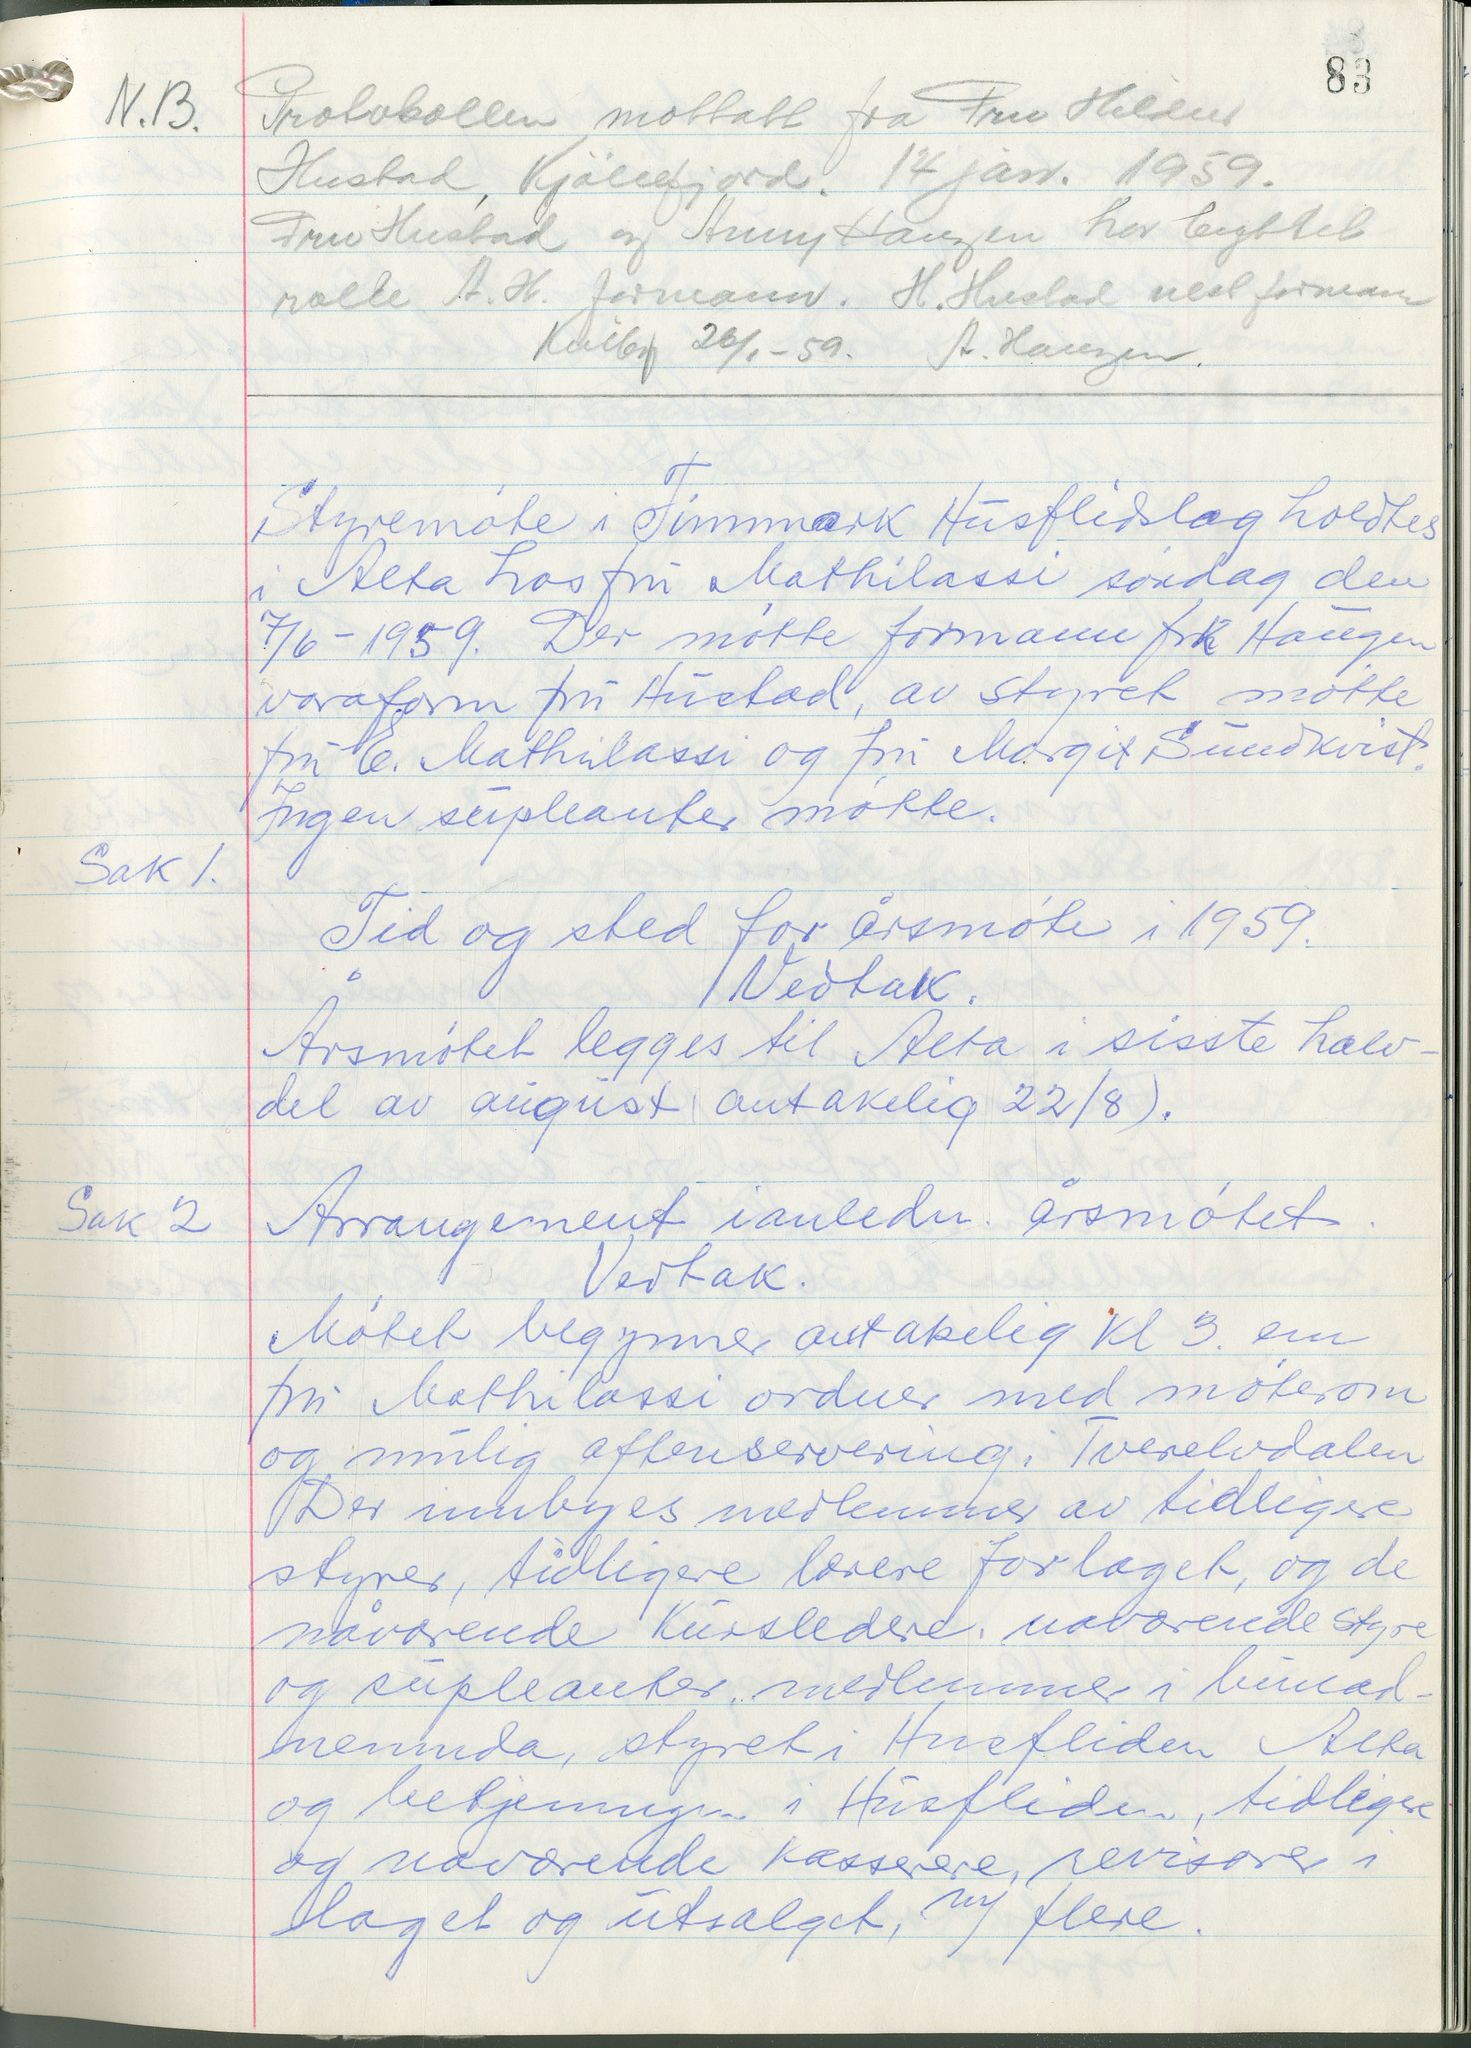 83
N.B. Protokollen mottatt fra Fru Hildur
Hustad, Kjöllefjord. 14 jan. 1959.
Fru Hustad og Anny Haugen har byttet
rolle A.H. formann. H. Hustad nestformann
26/1-59. A. Haugen.
Styremöte i Finnmark Husflidslag holdtes
i Alta hos frú Mathilassi söndag den
7/6-1959. Der mötte formann frk Haugen
varaform frú Hústad, av styret mötte
frú E. Mathilassi og frú Margit Sundkvist.
Ingen súpleanter mötte.
Sak 1.
Tid og sted for årsmöte i 1959.
Vedtak.
Årsmötet legges til Alta i sisste halv-
del av august (antakelig 22/8).
Sak 2 Arrangement i anledn. årsmötet.
Vedtak.
Mötet begynner antakelig kl 3. em
frú Mathilassi ordner med möterom
og múlig aftenservering i Tverelvdalen
Der innbyes medlemmer av tidligere
styrer, tidligere lærere for laget, og de
nåværende kúrsledere. nåværende styre
og súpleanter, medlemmer i búnad-
nemnda, styret i Husfliden Alta
og betjeningen i Húsfliden, tidligere
og naværende kasserere, revisorer i
laget og útsalget, og flere.